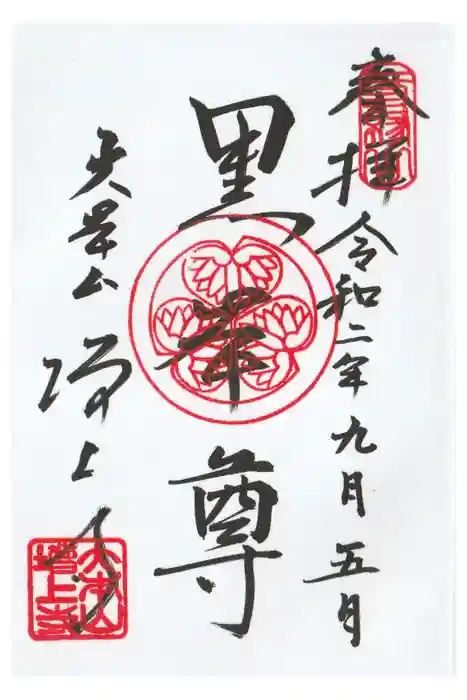 奉拝 令和二年九月五日
黒本尊
大本山 増上寺
大本山
増上寺